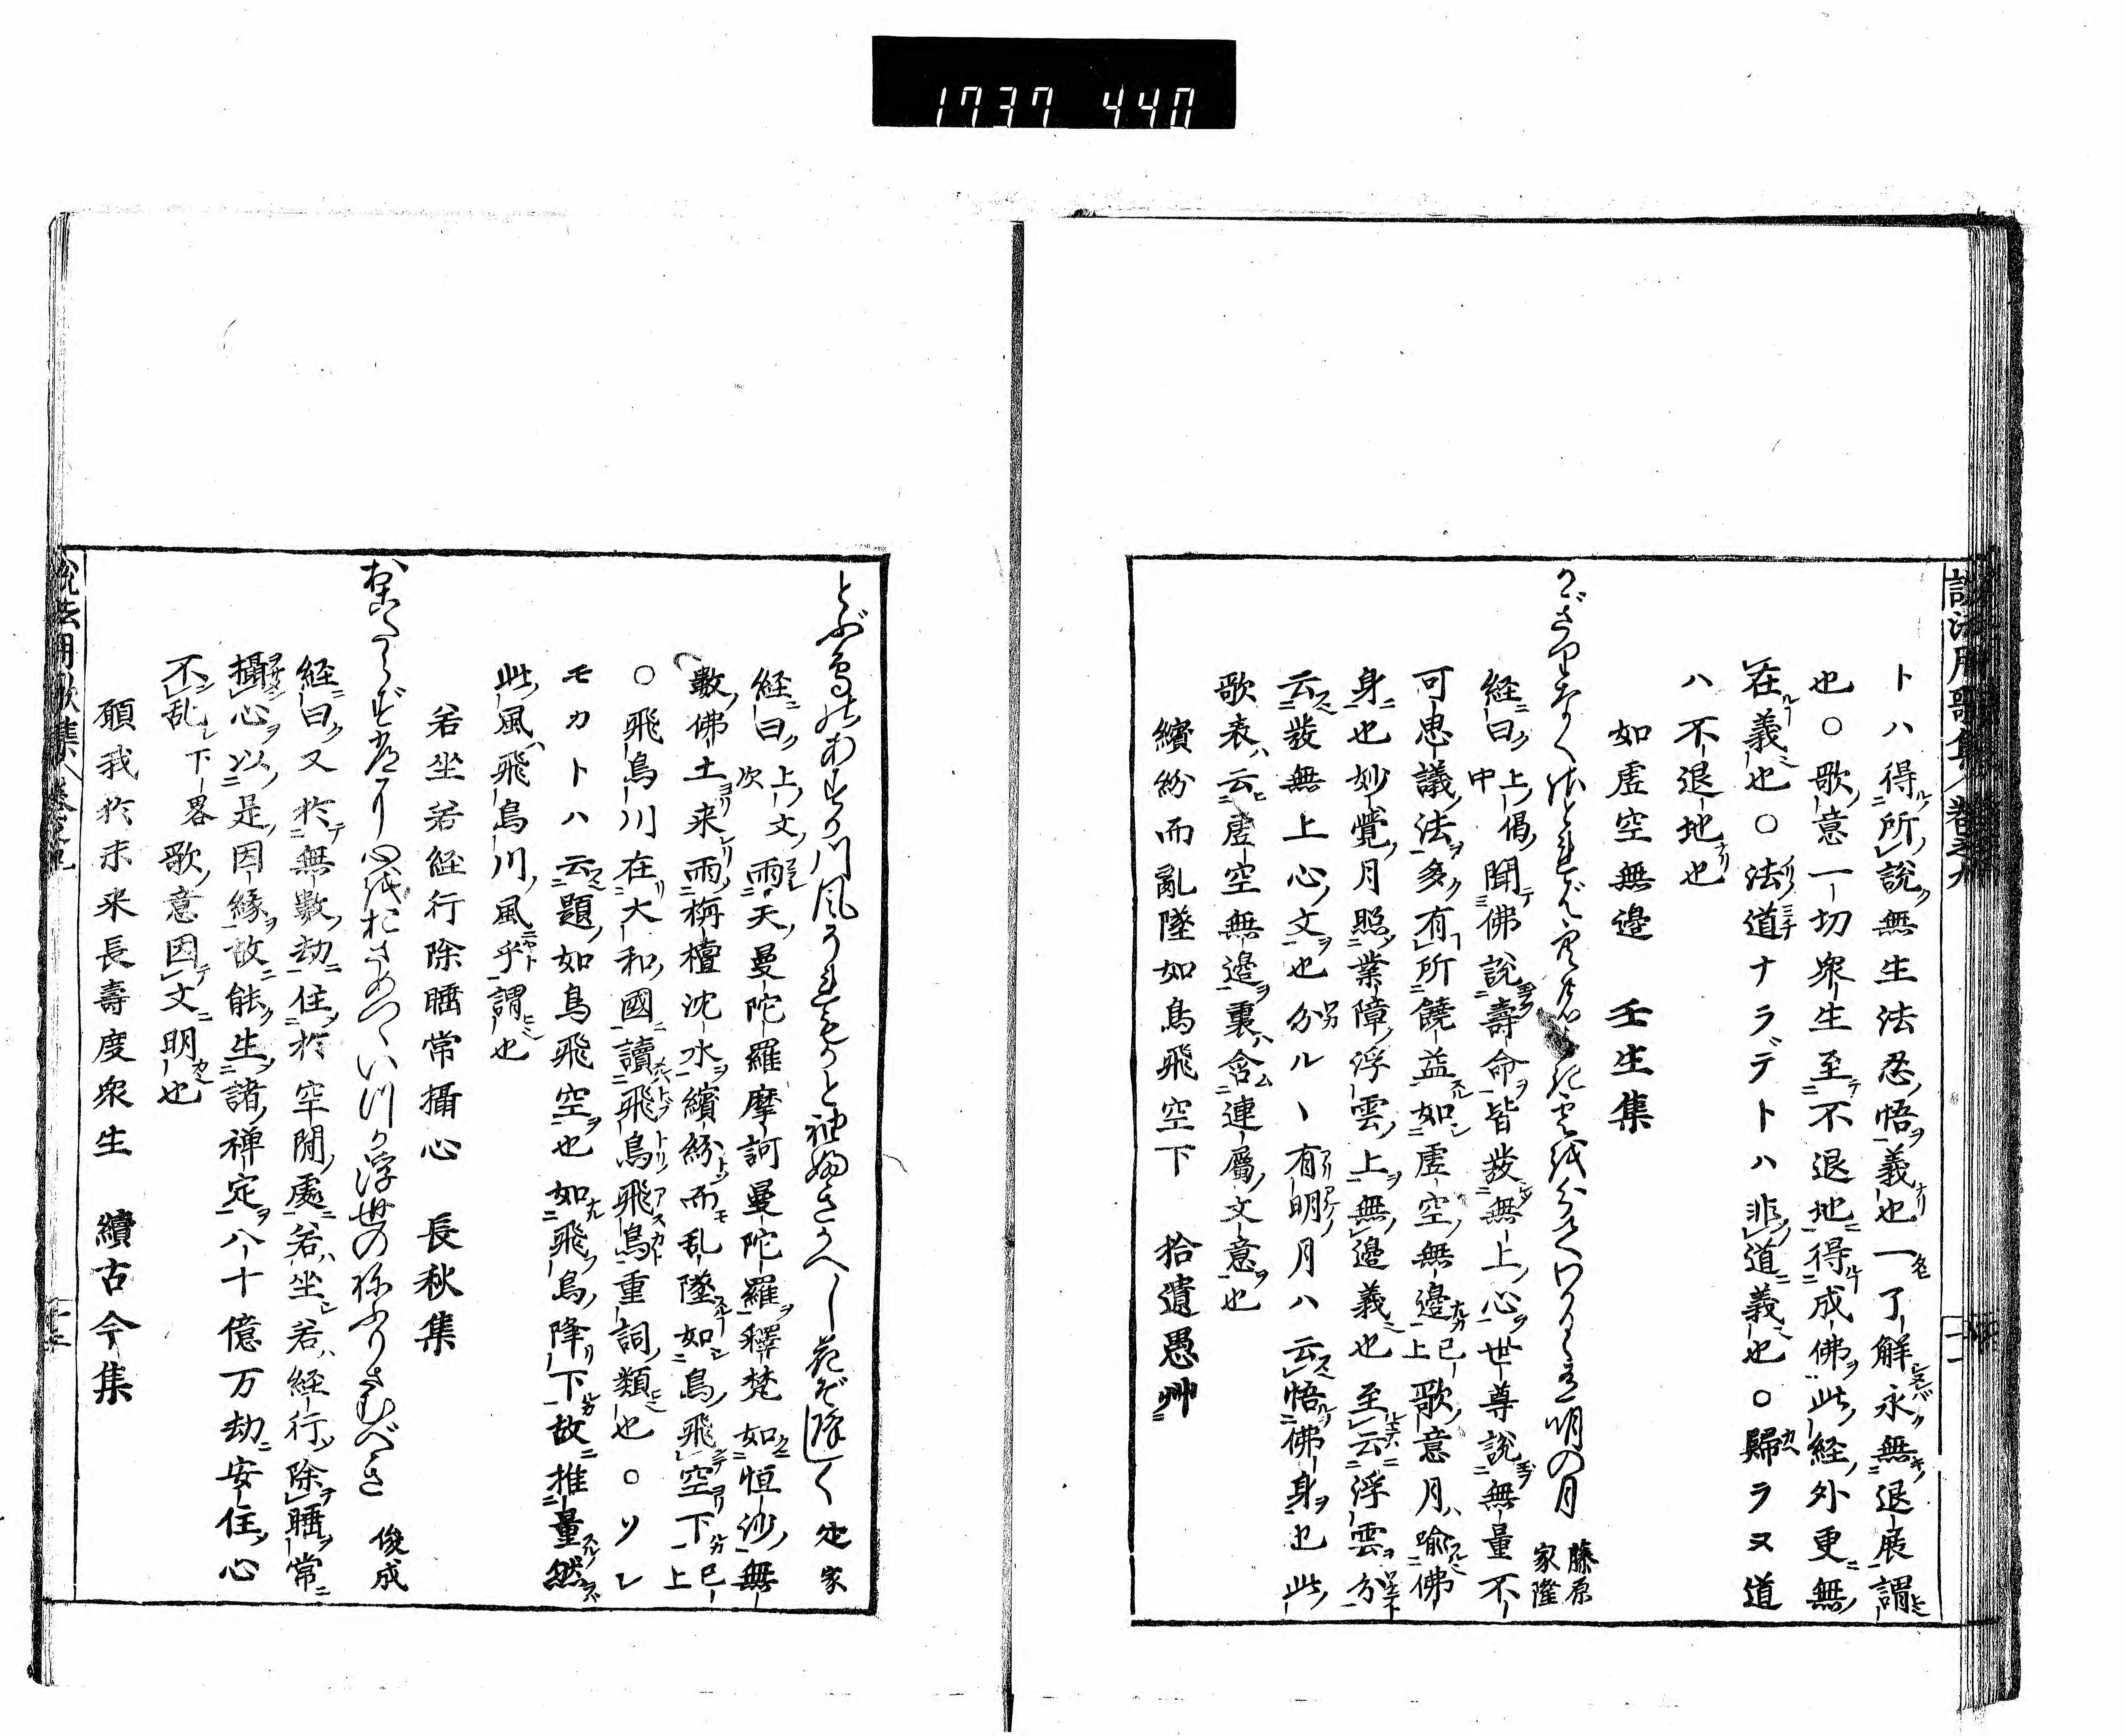 1737 440
説法用歌集 巻之九
トハ得所説無生法忍悟義也一了解永無退展謂
也○歌意一切衆生至不退地得成佛此経外更無
在義也○法道ナラデトハ非道義也○歸ラヌ道
ハ不退地也
如虚空無邊 壬生集
明の月 藤原家隆
経曰上偈中聞佛說壽命皆發無上心世尊說無量不
可思議法多有所饒益如虚空無邊已上歌意月喻佛
身也妙覺月照業障浮雲上無邊義也至云浮雲分
云發無上心文也分ルヽ有明月ハ云悟佛身也此
歌表云虚空無邊裏含連屬文意也
繽紛而亂墜如鳥飛空下 拾遺愚艸
とぶ鳥のあすか川風 定家
経曰上文次雨天曼陀羅摩訶曼陀羅釋梵如恒沙無
數佛土来雨栴檀沈水繽紛而乱墜如鳥飛空下已上
○飛鳥川在大和國讀飛鳥飛鳥重詞類也○ソレ
モカトハ云題如鳥飛空也如飛鳥降下故推量然
此風飛鳥川風乎謂也
若坐若経行除睡常攝心 長秋集
浮世のねふりさむべき 俊成
経曰又於無數劫住於空閒處若坐若経行除睡常
攝心以是因縁故能生諸禅定八十億万劫安住心
不乱下畧歌意因文明也
願我於未来長壽度衆生 續古今集